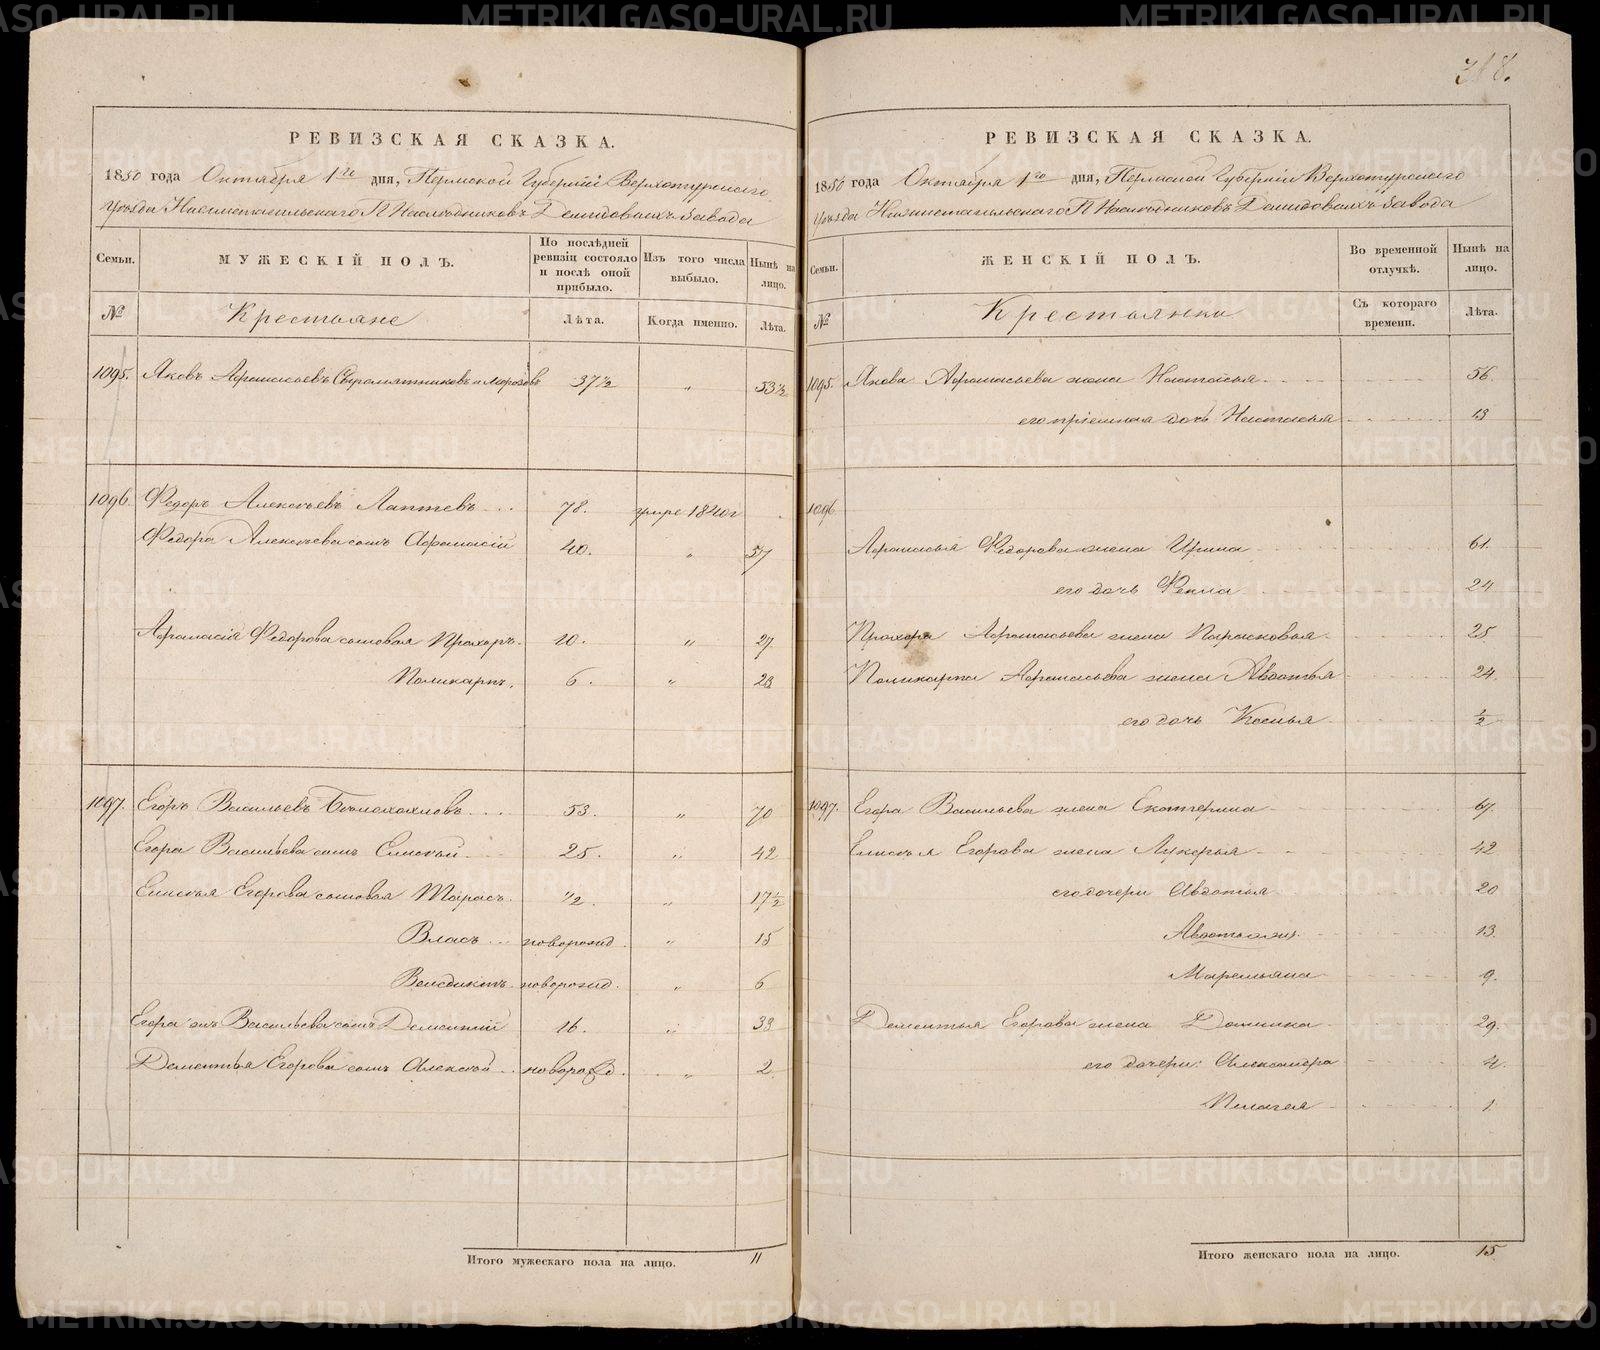 318.
РЕВИЗСКАЯ СКАЗКА.
1850 года Октября 1го дня, Пермской Губернiи Верхотурского
Уѣзда Нижнетагильского Г Наслѣдниковъ Демидовыхъ завода
Семьи. МУЖЕСКIЙ ПОЛЪ. По послѣдней ревизiи состояло и послѣ оной прибыло. Изъ того числа выбыло. Нынѣ на лицо.
№ Крестьяне Лѣта. Когда именно. Лѣта.
1095. Яковъ Афанасьевъ Сыромятниковъ и Морозовъ 37½ " 53½
1096. Федоръ Алексѣевъ Лаптевъ 78. умре 1840г
Федора Алексѣева сынъ Афанасiй 40. " 57
Афанасiя Федорова сыновья Прохоръ. 10. " 27.
Поликарпъ. 6. " 23
1097. Егоръ Васильевъ Бѣлохохловъ 53. " 70
Егора Васильева сынъ Елисѣй 25. " 42
Елисѣя Егорова сыновья Тарасъ. ½. " 17½
Власъ новорожд. " 15
Венедиктъ новорожд. " 6
Егора Васильева сынъ Дементiй 16. " 33
Дементья Егорова сынъ Алексѣй новорожд. " 2
Итого мужескаго пола на лицо. 11
РЕВИЗСКАЯ СКАЗКА.
1850 года Октября 1го дня, Пермской Губернiи Верхотурского
Уѣзда Нижнетагильского Г Наслѣдниковъ Демидовыхъ завода
Семьи. ЖЕНСКIЙ ПОЛЪ. Во временной отлучкѣ. Нынѣ на лицо.
№ Крестьянки Съ котораго времени. Лѣта.
1095. Якова Афанасьева жена Настасья 56.
его прiемная дочь Настасья 13
1096
Афанасья Федорова жена Ирина 61.
его дочь Фекла 24
Прохора Афанасьева жена Парасковья 25
Поликарпа Афанасьева жена Авдотья 24.
его дочь Ксенья ½
1097. Егора Васильева жена Екатерина 67.
Елисѣя Егорова жена Лукерья 42
его дочери Авдотья 20
13.
Маремьяна 9.
Дементья Егорова жена Домника 29.
его дочери: Александра 4.
Пелагея 1
Итого женскаго пола на лицо. 15